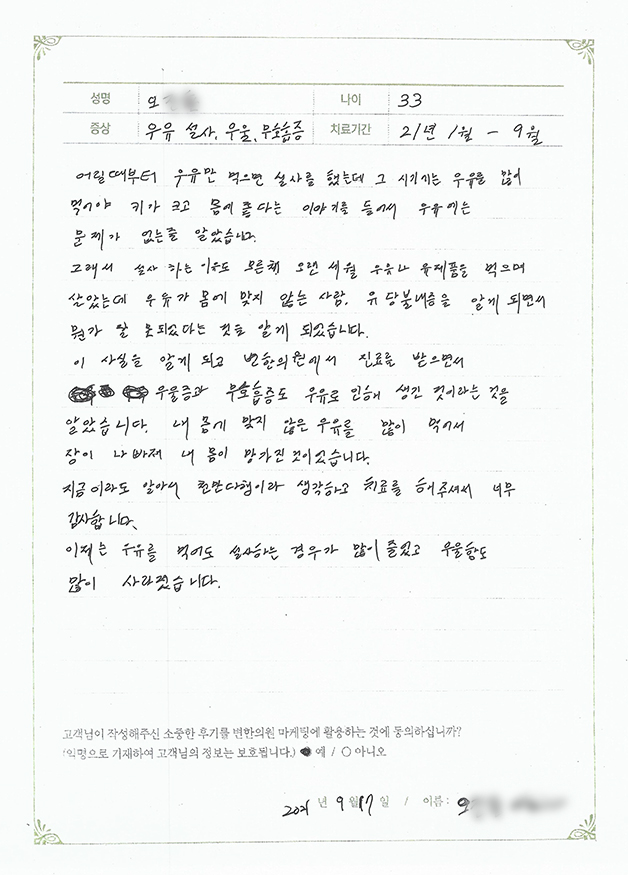 성명 오 나이 33
증상 우유 설사, 우울, 무호흡증 치료기간 21년 1월 - 9월
어릴때부터 우유만 먹으면 설사를 했는데 그 시기에는 우유를 많이
먹어야 키가 크고 몸에 좋다는 이야기를 들어서 우유에는
문제가 없는줄 알았습니다.
그래서 설사 하는 이유도 모른채 오랜 세월 우유나 유제품을 먹으며
살았는데 우유가 몸에 맞지 않는 사람, 유당불내증을 알게 되면서
뭔가 잘 못되었다는 것을 알게 되었습니다.
이 사실을 알게 되고 변한의원에서 진료를 받으면서
우울증과 무호흡증도 우유로 인해 생긴 것이라는 것을
알았습니다. 내 몸에 맞지 않은 우유를 많이 먹어서
장이 나빠져 내 몸이 망가진것이었습니다.
지금이라도 알아서 천만다행이라 생각하고 치료를 해주셔서 너무
감사합니다.
이제는 우유를 먹어도 설사하는 경우가 많이 줄었고 우울함도
많이 사라졌습니다.
고객님이 작성해주신 소중한 후기를 변한의원 마케팅에 활용하는 것에 동의하십니까?
(익명으로 기재하여 고객님의 정보는 보호됩니다.) ● 예 / ○ 아니오
2021 년 9 월 17 일 / 이름 : 오